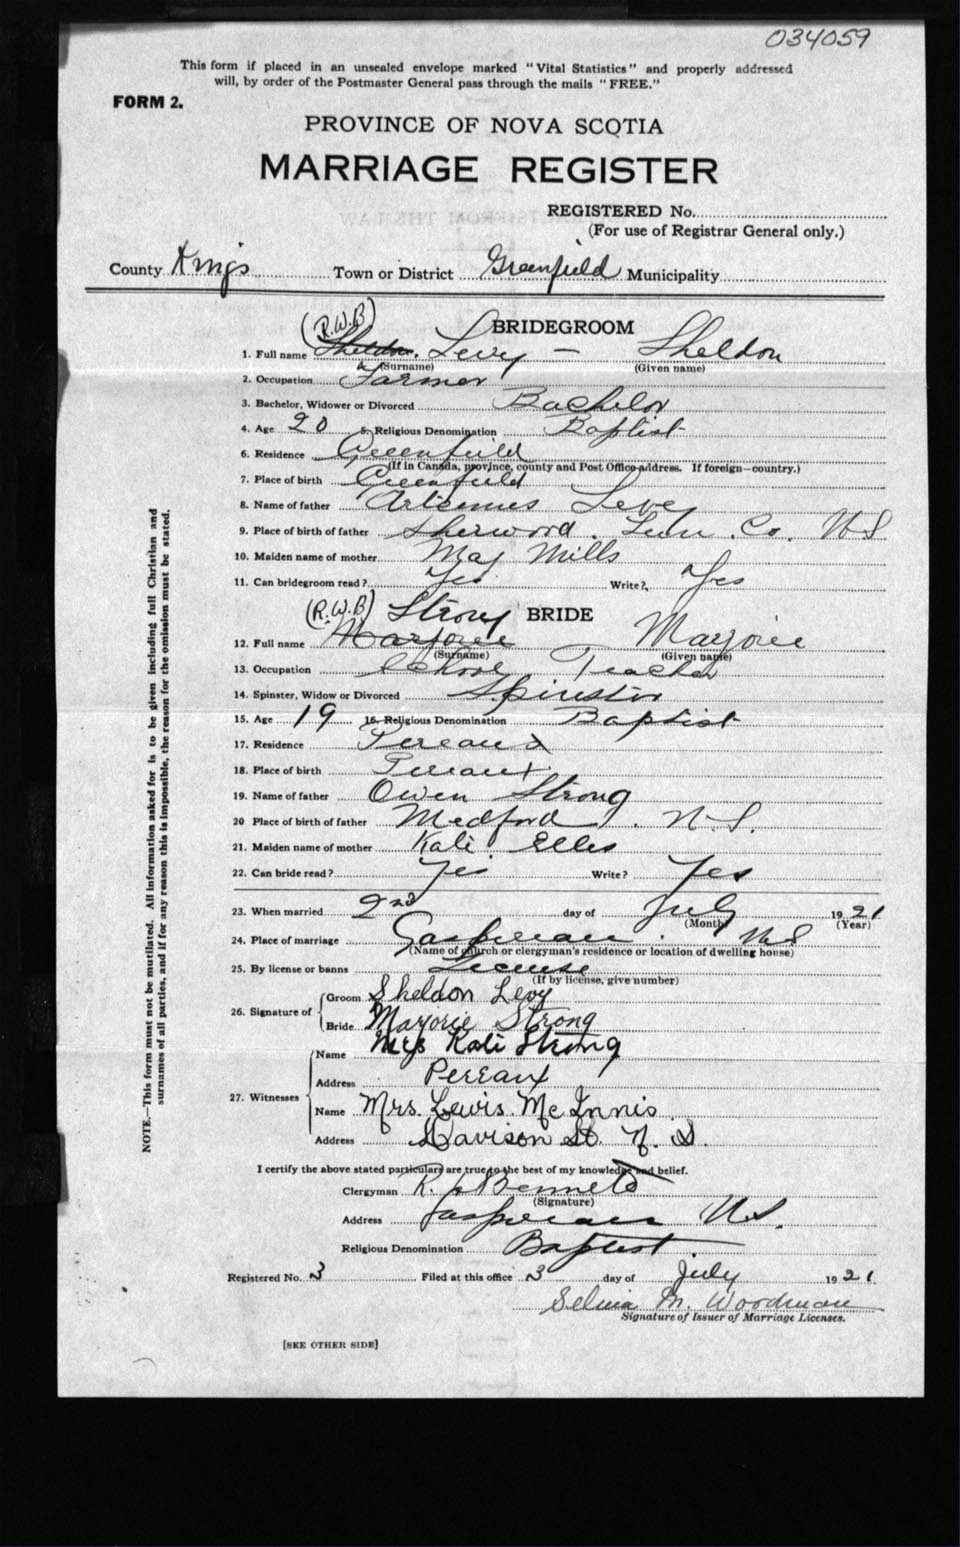 034059
This form if placed in an unsealed envelope marked "Vital Statistics" and properly addressed
will, by order of the Postmaster General pass through the mails "FREE."
FORM 2.
PROVINCE OF NOVA SCOTIA
MARRIAGE REGISTER
REGISTERED No.
(For use of Registrar General only.)
County Kings Town or District Greenfield Municipality
(R.W.B) BRIDEGROOM
1. Full name Sheldon. Levy — Sheldon
(Surname) (Given name)
2. Occupation Farmer
3. Bachelor, Widower or Divorced Bachelor
4. Age 20 5. Religious Denomination Baptist
6. Residence Greenfield
(If in Canada, province, county and Post Office address. If foreign—country.)
7. Place of birth Greenfield
8. Name of father Artemus Levy
9. Place of birth of father Sherwood. Lun. Co. N S
10. Maiden name of mother May Mills
11. Can bridegroom read? Yes Write? Yes
(R.W.B) Strong BRIDE
12. Full name Marjorie Marjorie
(Surname) (Given name)
13. Occupation School Teacher
14. Spinster, Widow or Divorced Spinster
15. Age 19 16. Religious Denomination Baptist
17. Residence Pereaux
18. Place of birth Pereaux
19. Name of father Owen Strong
20 Place of birth of father Medford. N.S.
21. Maiden name of mother Kate Ells
22. Can bride read? Yes Write? Yes
23. When married 2nd day of July 1921
(Month) (Year)
24. Place of marriage Gaspereau. N S
(Name of church or clergyman's residence or location of dwelling house)
25. By license or banns License
(If by license, give number)
26. Signature of Groom Sheldon Levy
Bride Marjorie Strong
27. Witnesses Name Mrs Kate Strong
Address Pereaux
Name Mrs. Lewis McInnis
Address Davison St. N. S.
I certify the above stated particulars are true to the best of my knowledge and belief.
Clergyman R. Bennett
(Signature)
Address Gaspereau N.S.
Religious Denomination Baptist
Registered No. 3 Filed at this office 3 day of July 1921
Selina M. Woodman
Signature of Issuer of Marriage Licenses.
[SEE OTHER SIDE]
NOTE.—This form must not be mutilated. All information asked for is to be given including full Christian and
surnames of all parties, and if for any reason this is impossible, the reason for the omission must be stated.